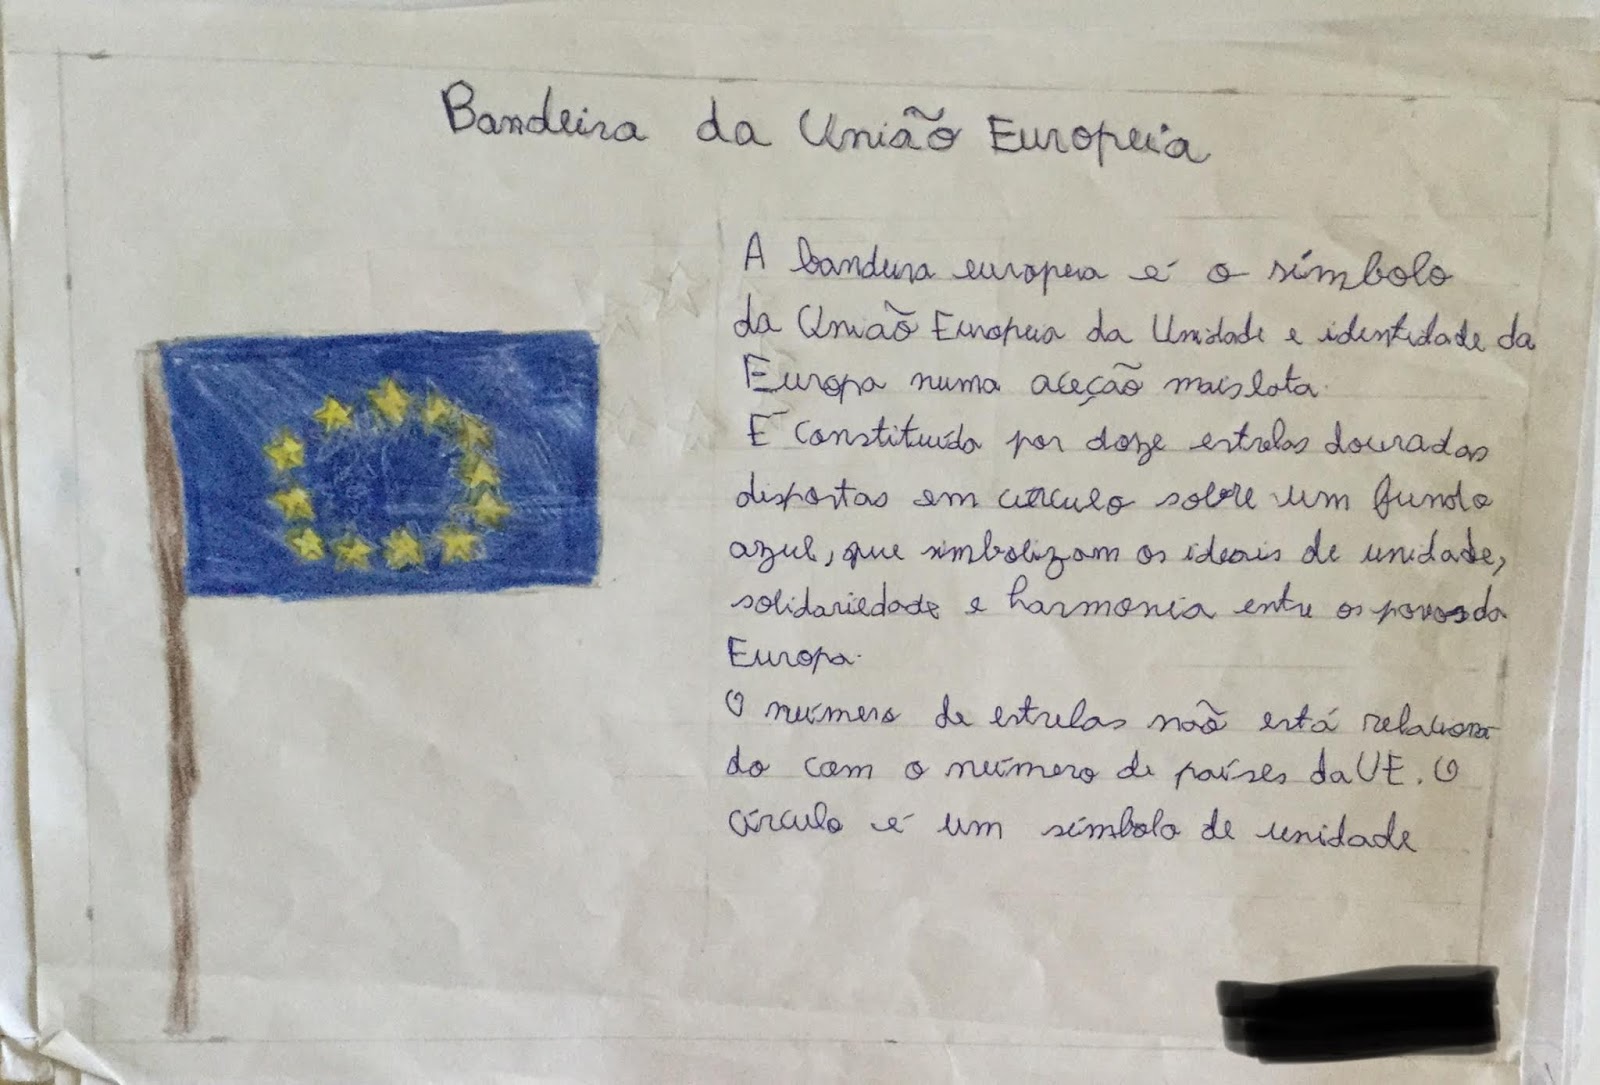 Bandeira da União Europeia
A bandeira europeia é o símbolo
da União Europeia da Unidade e identidade da
Europa numa aceção mais lata.
É constituída por doze estrelas douradas
dispostas em círculo sobre um fundo
azul, que simbolizam os ideais de unidade,
solidariedade e harmonia entre os povos da
Europa.
O número de estrelas não está relaciona
do com o número de países da UE. O
círculo é um símbolo de unidade